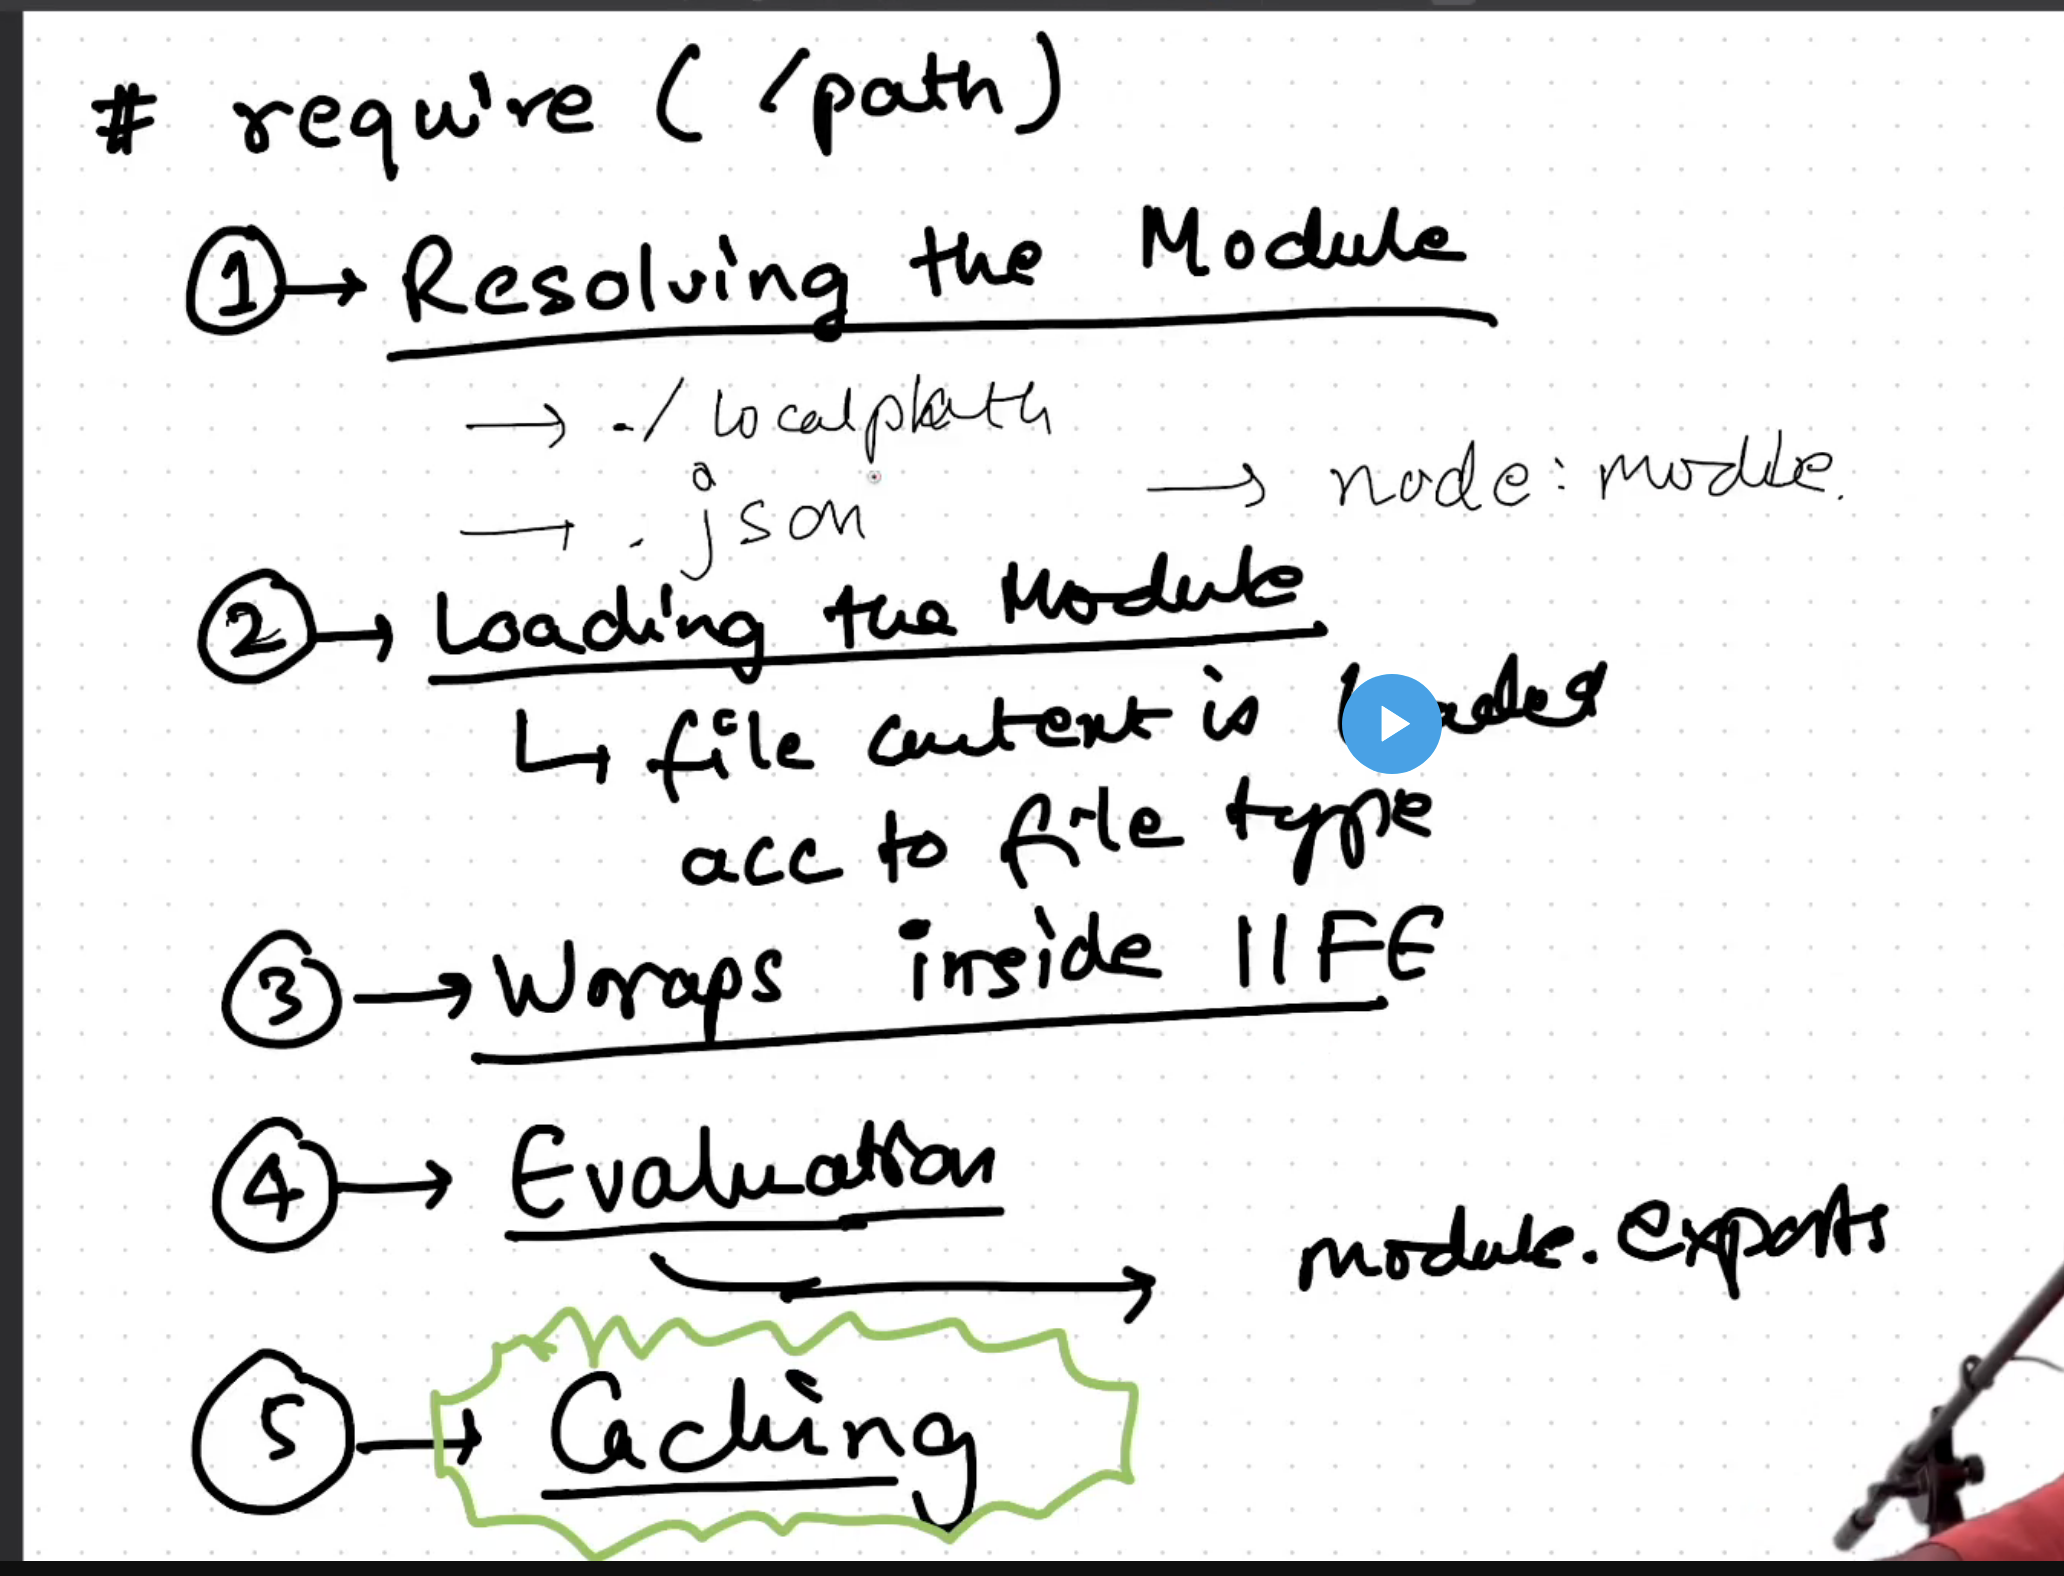 # require ( /path)
① → Resolving the Module
→ ./ localpath
→ .json → node: module.
② → Loading the Module
↳ file content is loaded
acc to file type
③ → Wraps inside IIFE
④ → Evaluation
→ module.exports
⑤ → Caching